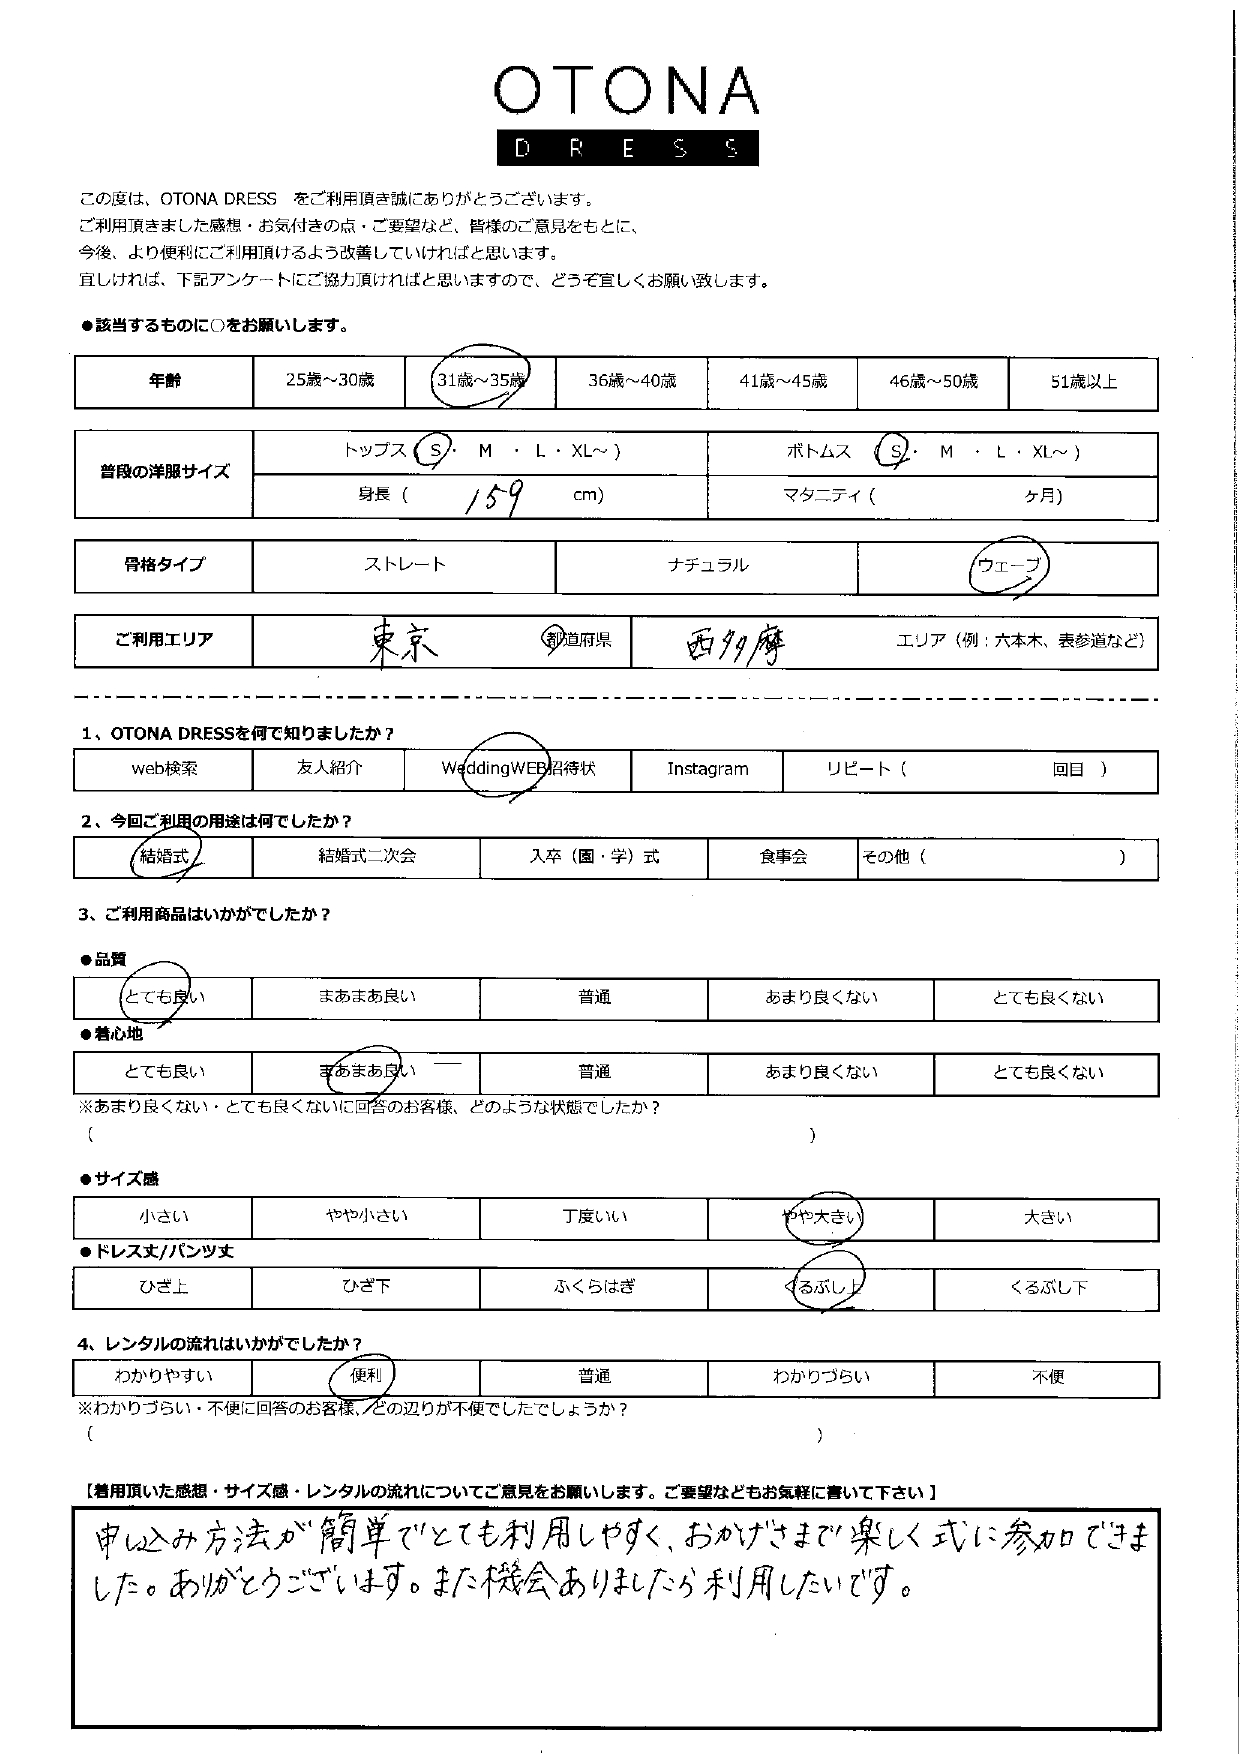 OTONA
DRESS
この度は、OTONA DRESS　をご利用頂き誠にありがとうございます。
ご利用頂きました感想・お気付きの点・ご要望など、皆様のご意見をもとに、
今後、より便利にご利用頂けるよう改善していければと思います。
宜しければ、下記アンケートにご協力頂ければと思いますので、どうぞ宜しくお願い致します。
●該当するものに○をお願いします。
年齢 25歳～30歳 31歳～35歳 36歳～40歳 41歳～45歳 46歳～50歳 51歳以上
普段の洋服サイズ トップス（ S ・ M ・ L ・ XL～ ) ボトムス （ S ・ M ・ L ・ XL～ )
身長（ 159 cm) マタニティ（ ケ月)
骨格タイプ ストレート ナチュラル ウェーブ
ご利用エリア 東京 都道府県 西多摩 エリア（例：六本木、表参道など）
1、OTONA DRESSを何で知りましたか？
web検索 友人紹介 WeddingWEB招待状 Instagram リピート（ 回目 ）
2、今回ご利用の用途は何でしたか？
結婚式 結婚式二次会 入卒（園・学）式 食事会 その他（ ）
3、ご利用商品はいかがでしたか？
●品質
とても良い まあまあ良い 普通 あまり良くない とても良くない
●着心地
とても良い まあまあ良い 普通 あまり良くない とても良くない
※あまり良くない・とても良くないに回答のお客様、どのような状態でしたか？
（ ）
●サイズ感
小さい やや小さい 丁度いい やや大きい 大きい
●ドレス丈/パンツ丈
ひざ上 ひざ下 ふくらはぎ くるぶし上 くるぶし下
4、レンタルの流れはいかがでしたか？
わかりやすい 便利 普通 わかりづらい 不便
※わかりづらい・不便に回答のお客様、どの辺りが不便でしたでしょうか？
（ ）
【着用頂いた感想・サイズ感・レンタルの流れについてご意見をお願いします。ご要望などもお気軽に書いて下さい】
申し込み方法が簡単でとても利用しやすく、おかげさまで楽しく式に参加できま
した。ありがとうございます。また機会ありましたら利用したいです。